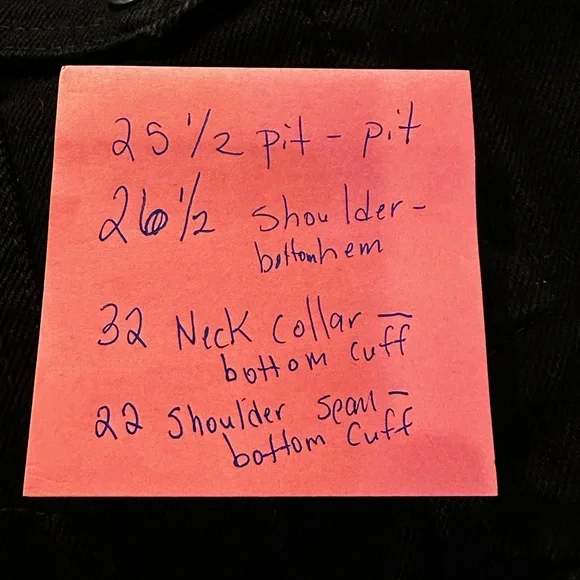 25 1/2 pit - pit
26 1/2 shoulder -
bottom hem
32 Neck collar -
bottom cuff
22 shoulder seam -
bottom cuff